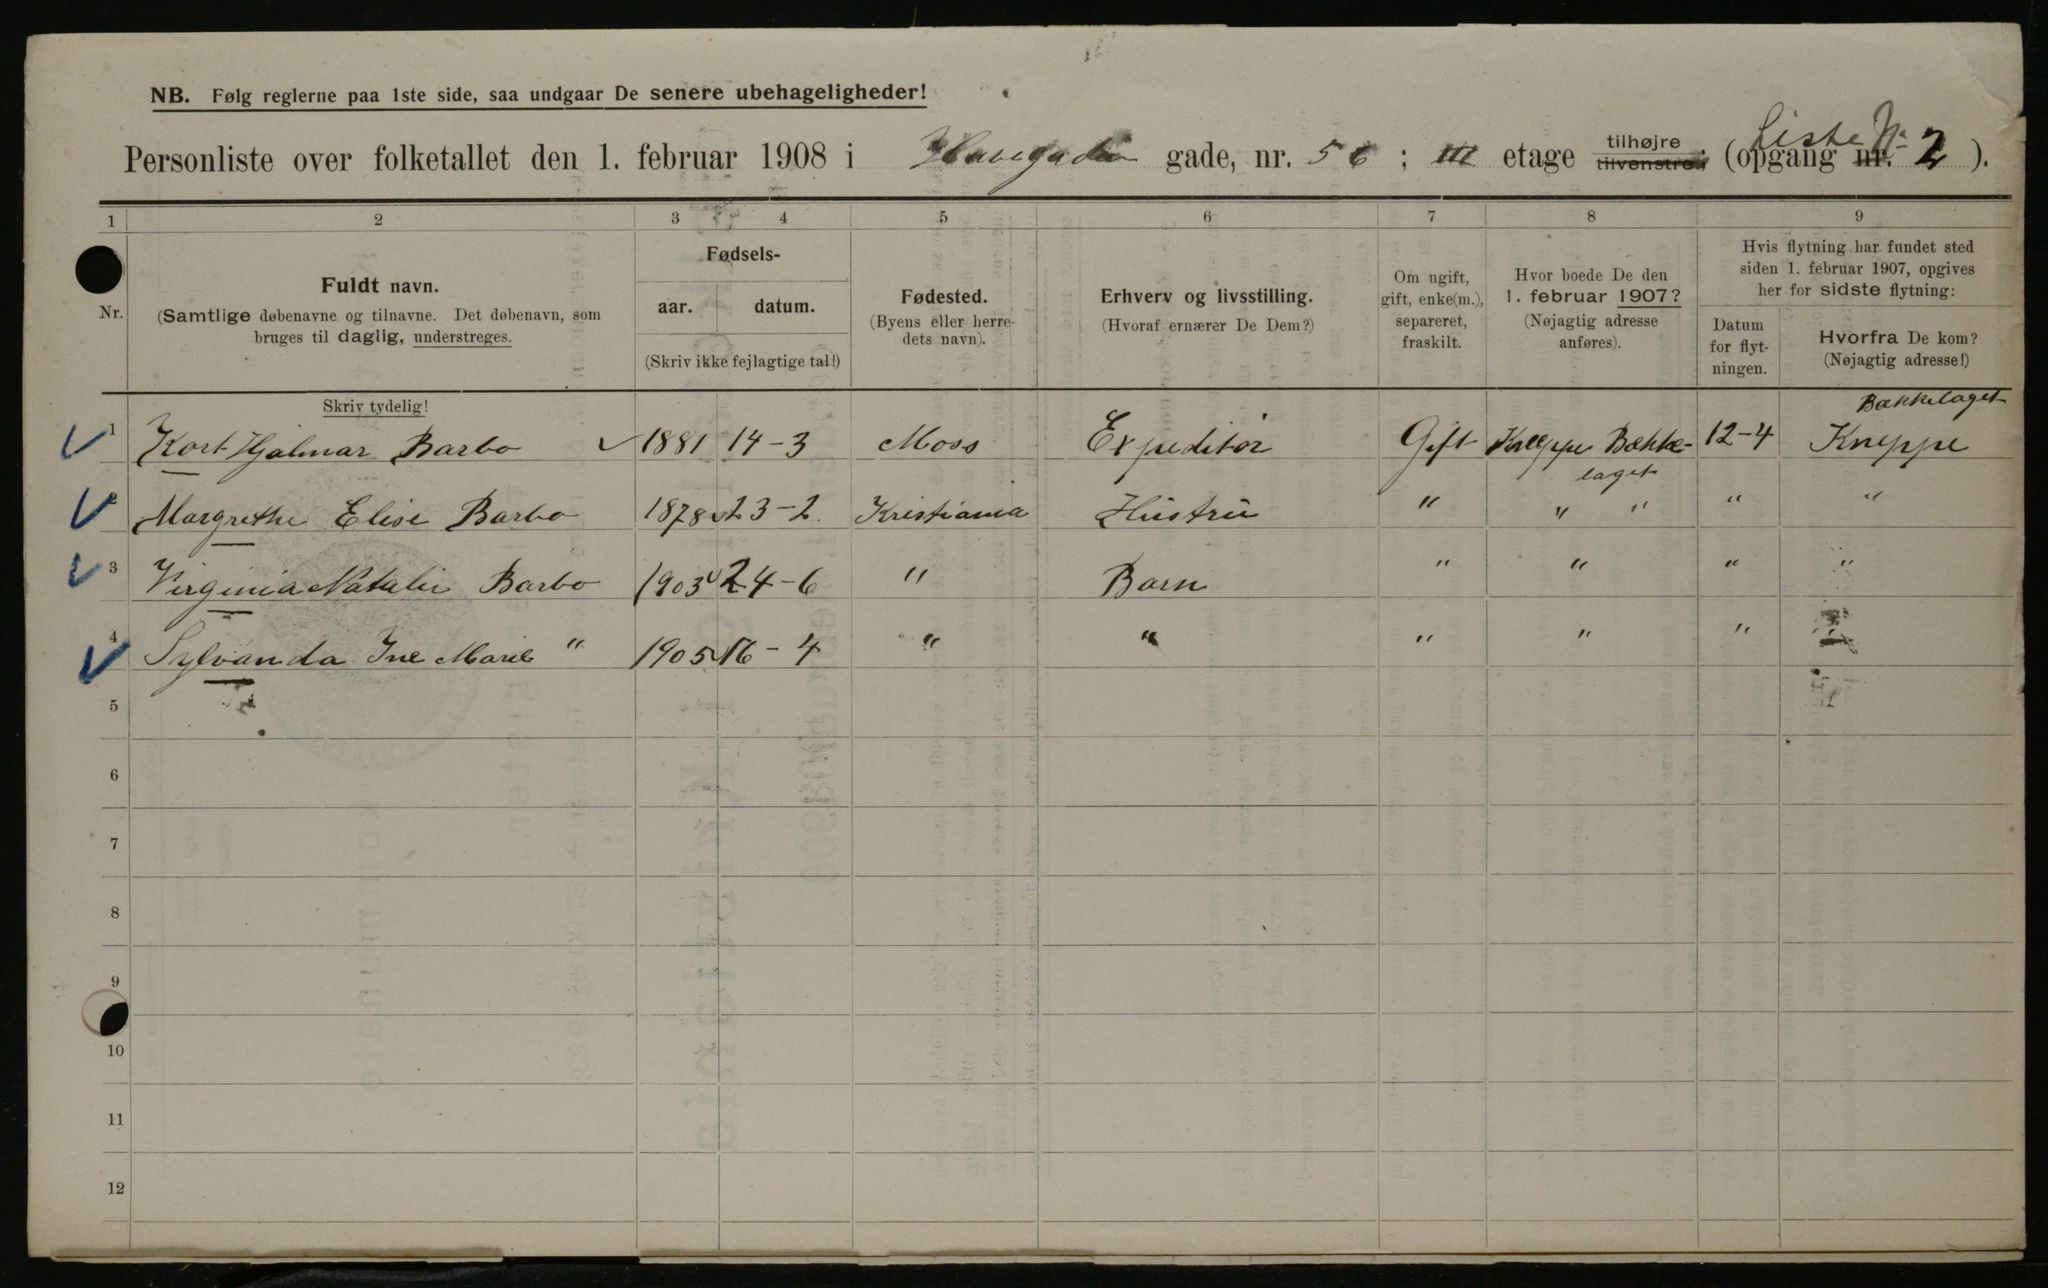 NB. Følg reglerne paa 1ste side, saa undgaar De senere ubehageligheder!
Personliste over folketallet den 1. februar 1908 i Havegaden gade, nr. 56; III etage tilhøjre tilvenstre; (opgang nr. Liste № 2).
1 2 3 4 5 6 7 8 9
Nr.
Fuldt navn.
(Samtlige døbenavne og tilnavne. Det døbenavn, som
bruges til daglig, understreges.
Skriv tydelig!
Fødsels-
aar. datum.
(Skriv ikke fejlagtige tal!)
Fødested.
(Byens eller herre-
dets navn).
Erhverv og livsstilling.
(Hvoraf ernærer De Dem?)
Om ugift,
gift, enke(m.),
separeret,
fraskilt.
Hvor boede De den
1. februar 1907?
(Nøjagtig adresse
anføres).
Hvis flytning har fundet sted
siden 1. februar 1907, opgives
her for sidste flytning:
Datum
for flyt-
ningen.
Hvorfra De kom?
(Nøjagtig adresse!)
Bækkelaget
1 Kort Hjalmar Barbo 1881 14-3 Moss Expeditør Gift Kneppe Bække- 12-4 Kneppe
laget
2 Margrethe Elise Barbo 1878 23-2. Kristiania Hustru " " " " "
3 Virginia Natalie Barbo 1903 24-6 " Barn " " " "
4 Sylvanda Ine Marie " 1905 16-4 " " " " "
5
6
7
8
9
10
11
12